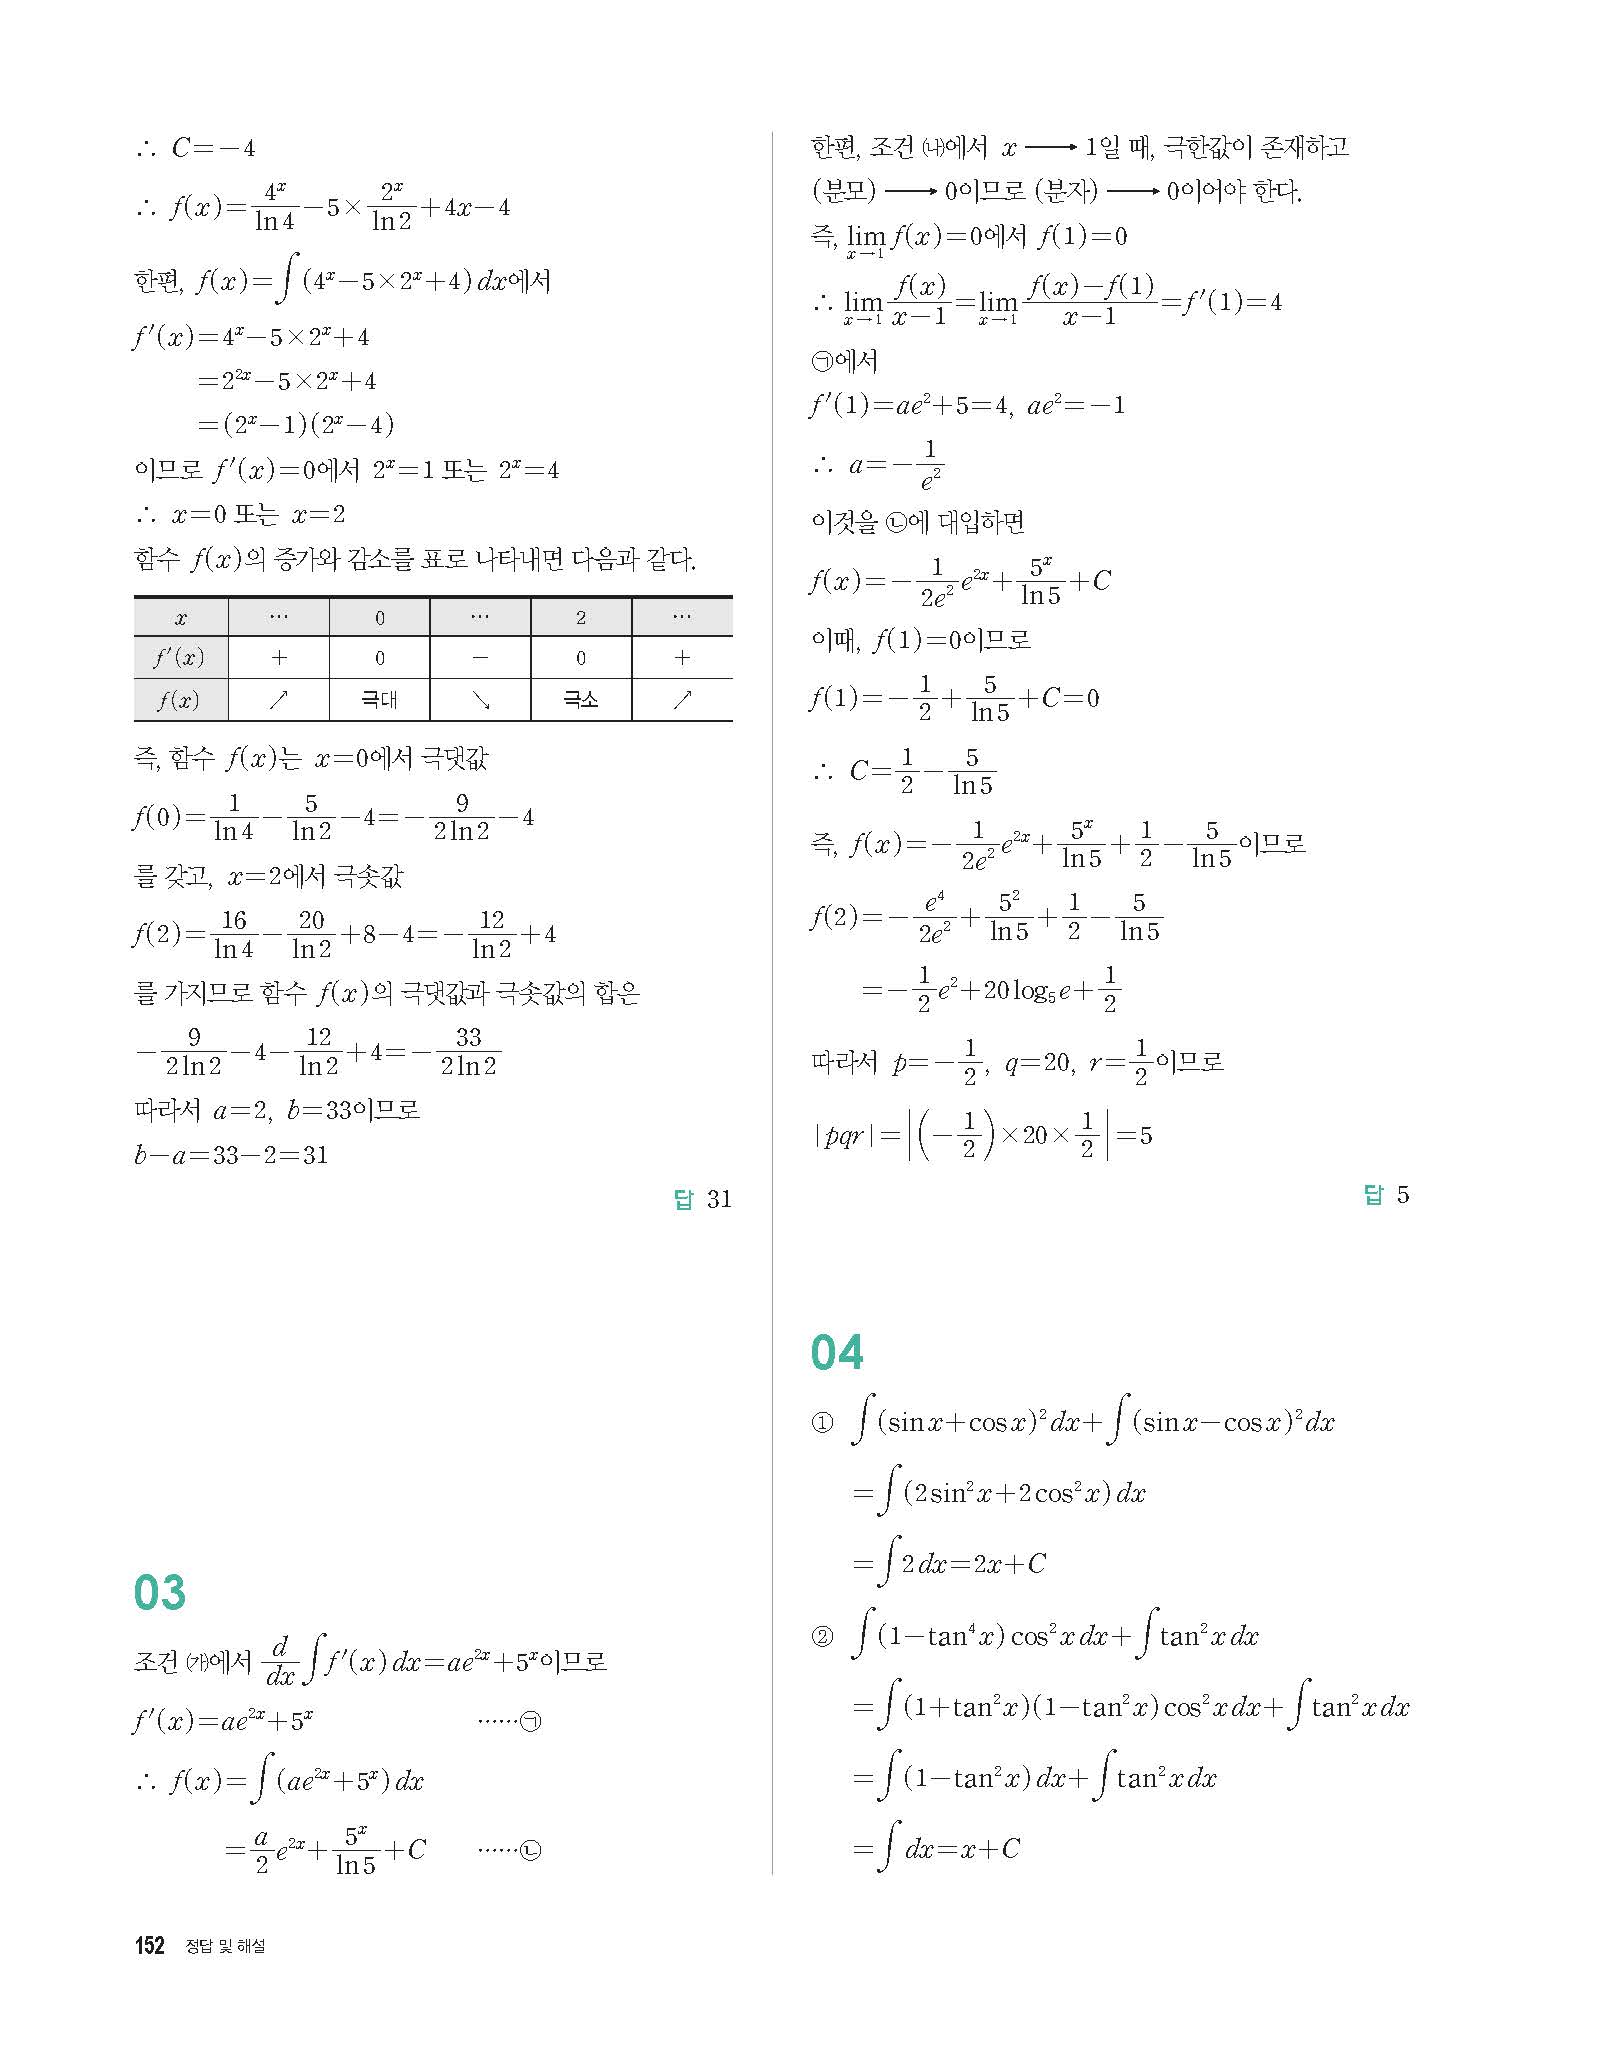 ∴ C=-4
∴ f(x)=4ˣ/ln4-5×2ˣ/ln2+4x-4
한편, f(x)=∫(4ˣ-5×2ˣ+4)dx에서
f′(x)=4ˣ-5×2ˣ+4
=2²ˣ-5×2ˣ+4
=(2ˣ-1)(2ˣ-4)
이므로 f′(x)=0에서 2ˣ=1 또는 2ˣ=4
∴ x=0 또는 x=2
함수 f(x)의 증가와 감소를 표로 나타내면 다음과 같다.
x … 0 … 2 …
f′(x) + 0 - 0 +
f(x) ↗ 극대 ↘ 극소 ↗
즉, 함수 f(x)는 x=0에서 극댓값
f(0)=1/ln4-5/ln2-4=-9/2ln2-4
를 갖고, x=2에서 극솟값
f(2)=16/ln4-20/ln2+8-4=-12/ln2+4
를 가지므로 함수 f(x)의 극댓값과 극솟값의 합은
-9/2ln2-4-12/ln2+4=-33/2ln2
따라서 a=2, b=33이므로
b-a=33-2=31
답 31
03
조건 ㈎에서 d/dx∫f′(x)dx=ae²ˣ+5ˣ이므로
f′(x)=ae²ˣ+5ˣ ……㉠
∴ f(x)=∫(ae²ˣ+5ˣ)dx
=a/2e²ˣ+5ˣ/ln5+C ……㉡
한편, 조건 ㈏에서 x ⟶ 1일 때, 극한값이 존재하고
(분모) ⟶ 0이므로 (분자) ⟶ 0이어야 한다.
즉, lim x→1 f(x)=0에서 f(1)=0
∴ lim x→1 f(x)/x-1=lim x→1 f(x)-f(1)/x-1=f′(1)=4
㉠에서
f′(1)=ae²+5=4, ae²=-1
∴ a=-1/e²
이것을 ㉡에 대입하면
f(x)=-1/2e²e²ˣ+5ˣ/ln5+C
이때, f(1)=0이므로
f(1)=-1/2+5/ln5+C=0
∴ C=1/2-5/ln5
즉, f(x)=-1/2e²e²ˣ+5ˣ/ln5+1/2-5/ln5이므로
f(2)=-e⁴/2e²+5²/ln5+1/2-5/ln5
=-1/2e²+20log₅e+1/2
따라서 p=-1/2, q=20, r=1/2이므로
|pqr|=|(-1/2)×20×1/2|=5
답 5
04
① ∫(sinx+cosx)²dx+∫(sinx-cosx)²dx
=∫(2sin²x+2cos²x)dx
=∫2dx=2x+C
② ∫(1-tan⁴x)cos²xdx+∫tan²xdx
=∫(1+tan²x)(1-tan²x)cos²xdx+∫tan²xdx
=∫(1-tan²x)dx+∫tan²xdx
=∫dx=x+C
152 정답 및 해설